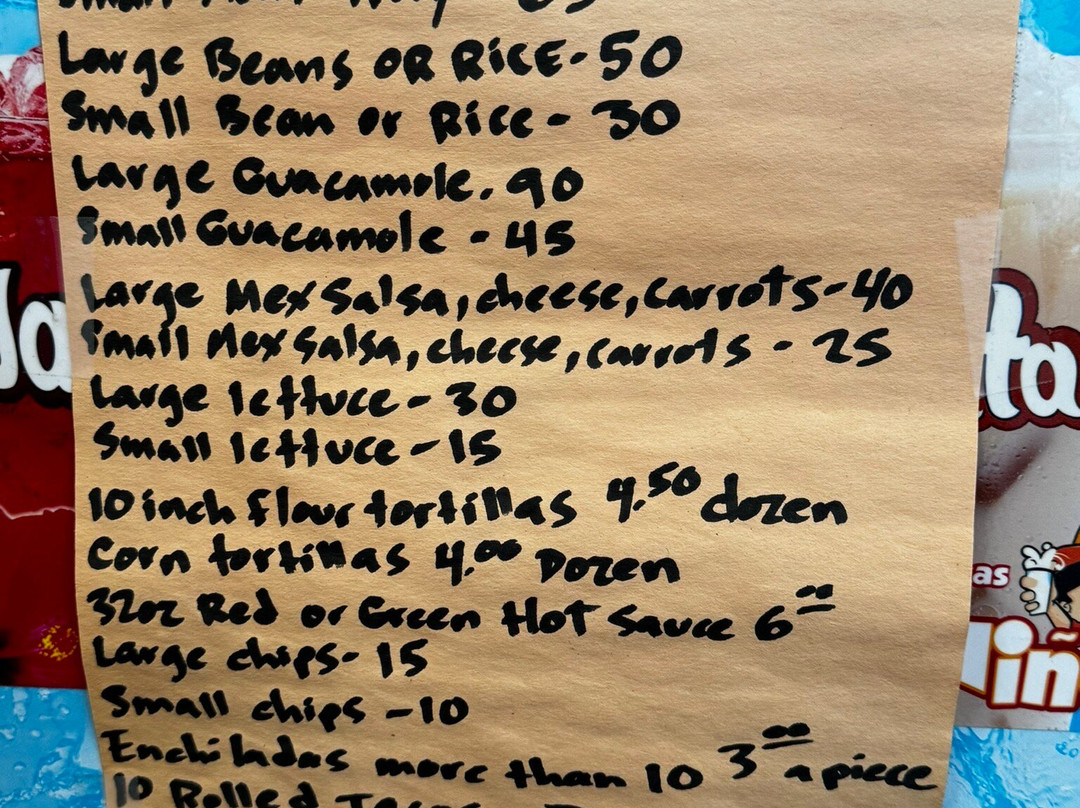 Large Beans OR RiCE-50
Small Bean or Rice - 30
Large Guacamole. 90
Small Guacamole - 45
Large Mex Salsa, cheese, carrots - 40
Small Mex Salsa, cheese, carrots - 25
Large lettuce - 30
Small lettuce - 15
10 inch flour tortillas 4.50 dozen
Corn tortillas 4.00 Dozen
32oz Red or Green Hot Sauce 6 00
Large chips - 15
Small chips - 10
Enchiladas more than 10 3 00 a piece
10 Rolled Tacos
ta
as
iñ